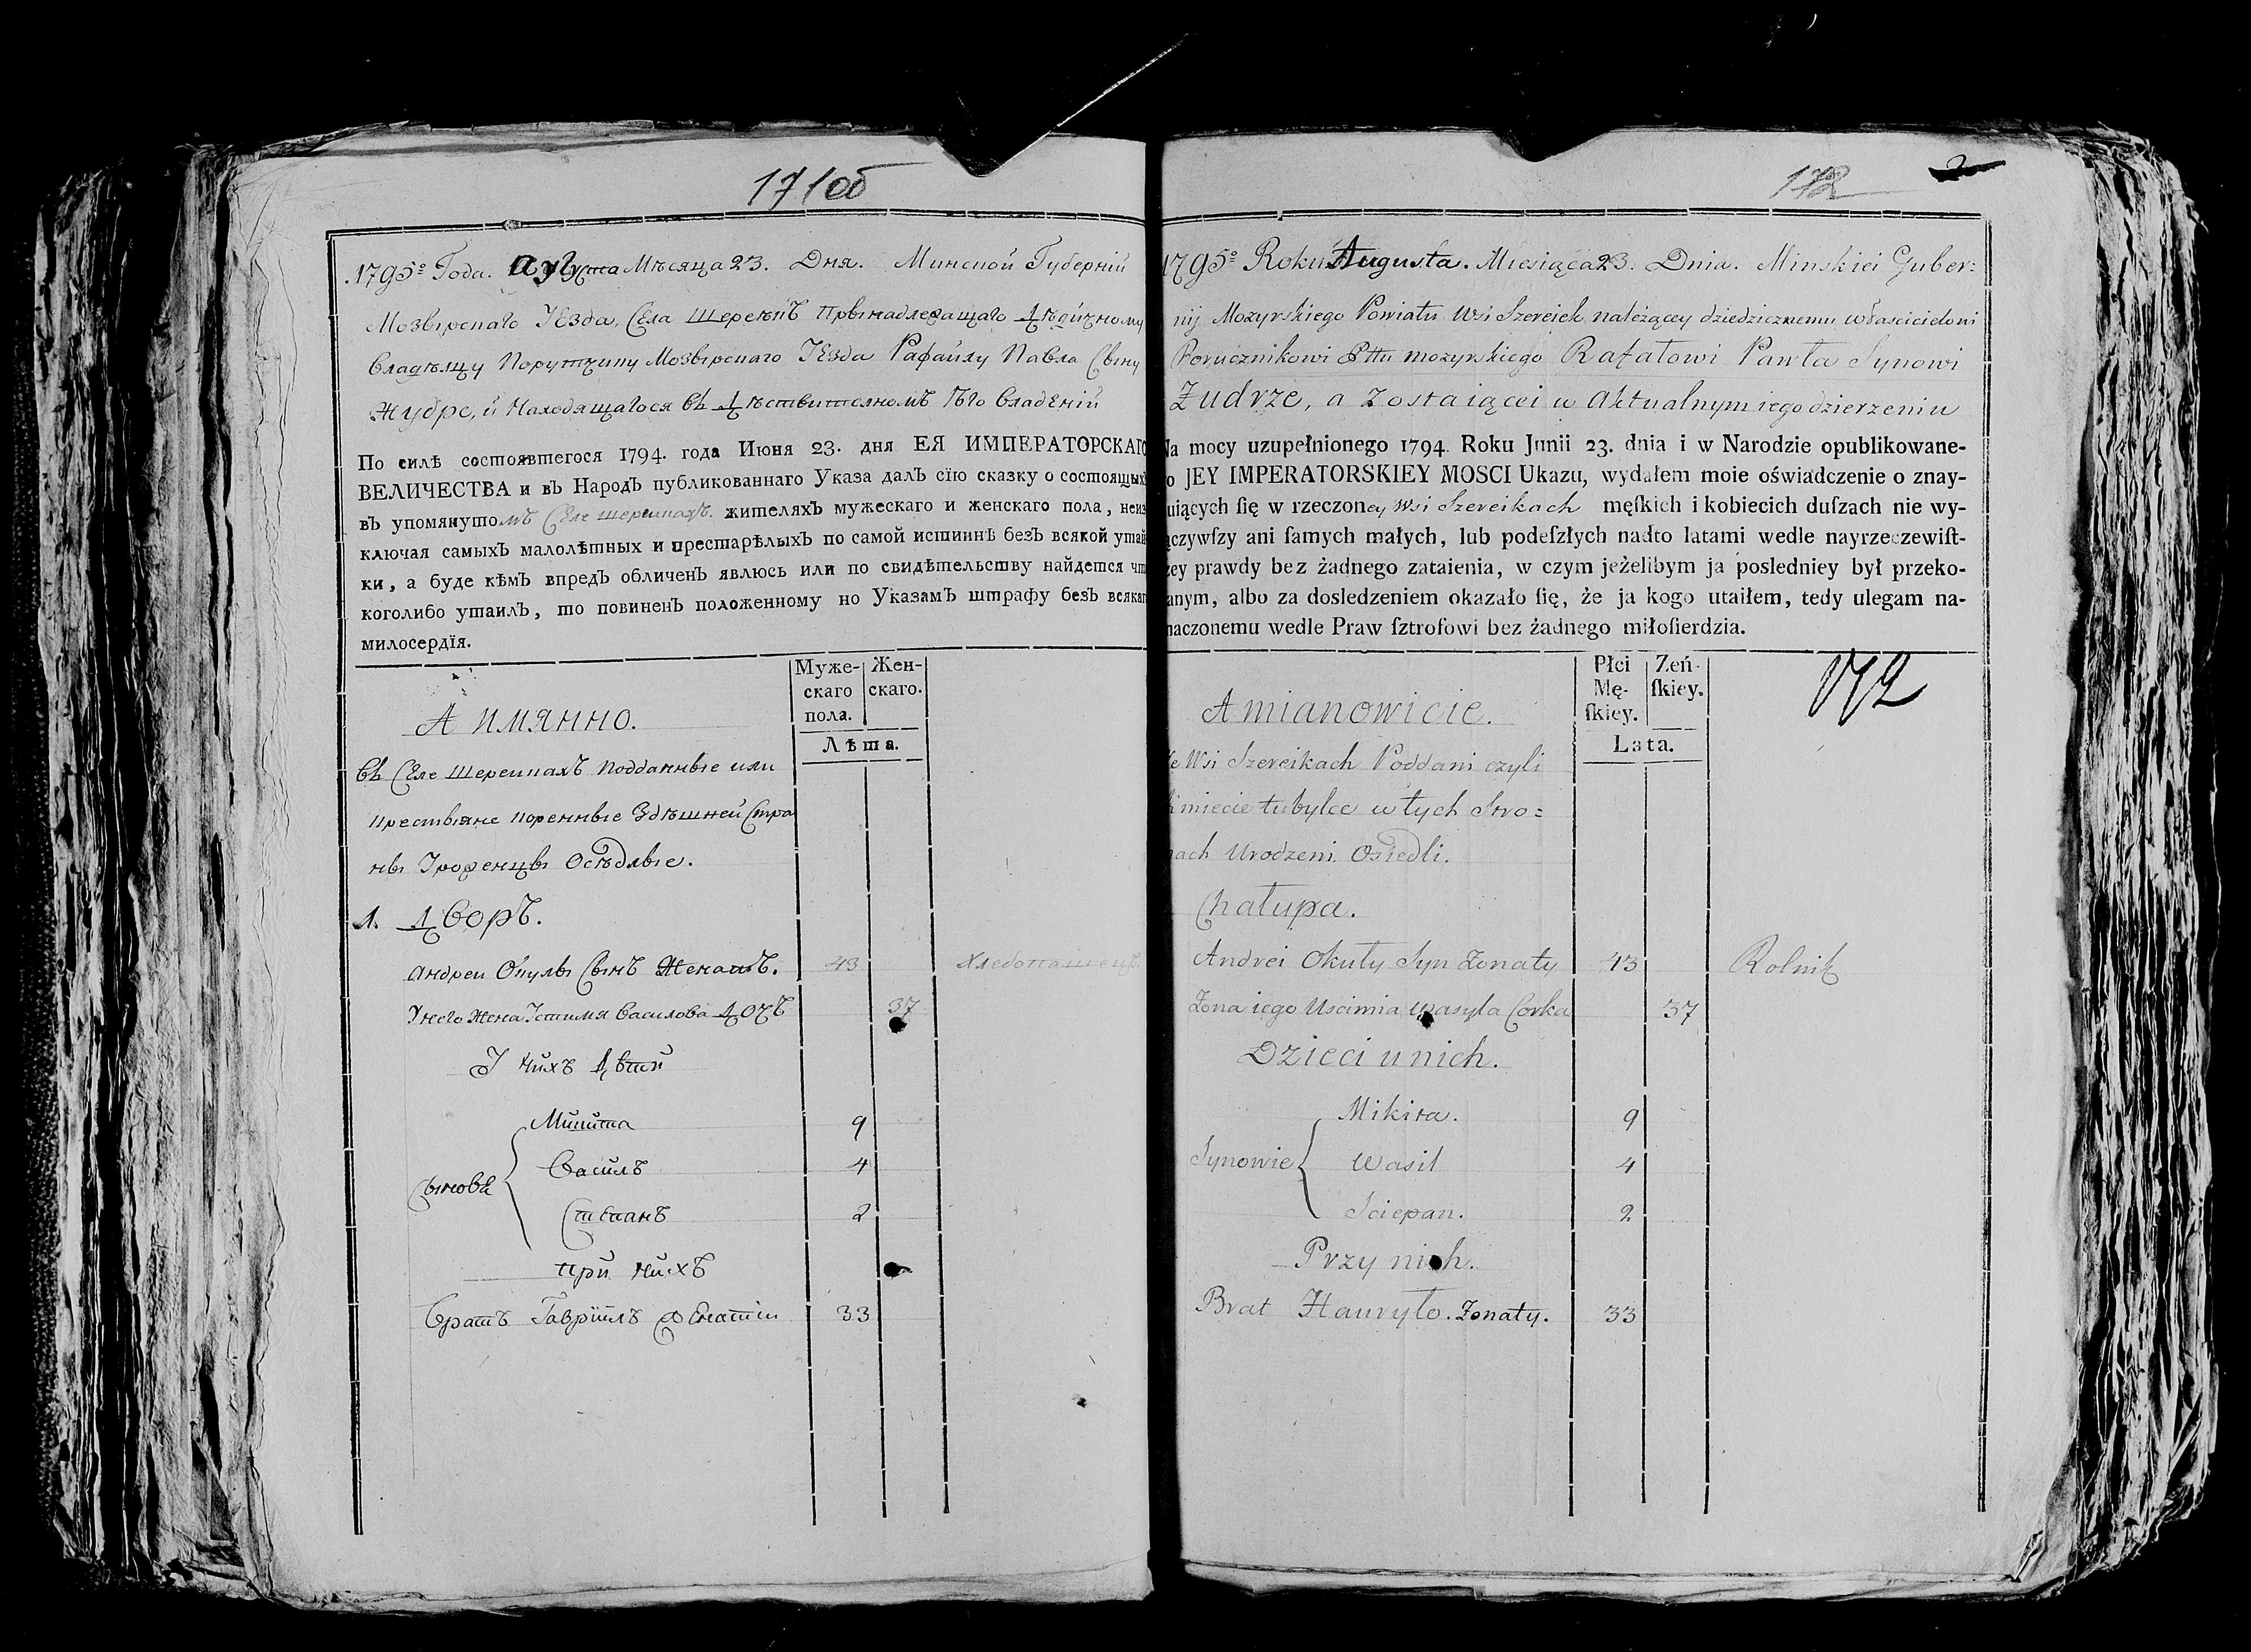 171об
1795º Года. Августа Мѣсяца 23. Дня. Минской Губернїй
Мозырскаго Уѣзда, Села Шереикъ принадлежащаго Дѣдичному
Владѣлцу Порутчику Мозырскаго Уѣзда Рафаилу Павла Сыну
Жудре, и находящагося въ Дѣствителномъ Его Владѣнїй
По силѣ состоявшегося 1794. года Июня 23. дня ЕЯ ИМПЕРАТОРСКАГО
ВЕЛИЧЕСТВА и въ Народъ публикованнаго Указа далъ сїю сказку о состоящыхъ
въ упомянутомъ Селе Шереикахъ. жителяхъ мужескаго и женскаго пола, неиз
ключая самыхъ малолѣтныхъ и престарѣлыхъ по самой истиннѣ безъ всякой утай
ки, а буде кѣмъ впредъ обличенъ явлюсь или по свидѣтельству найдется что
коголибо утаилъ, то повиненъ положенному по Указамъ штрафу безъ всякаго
милосердїя.
Муже-скаго пола. Жен-скаго.
А имянно.
Лѣта.
Въ Селе Шереикахъ подданные или
крестьяне коренные Здѣшней Стра
ны Уроженцы Осѣдлые.
1. Дворъ.
Андреи Окулы Сынъ Женатъ. 43 Хлебопашецъ
У него Жена Устимя Василова Дочъ 37
У нихъ Дѣти
Сыновѣ
Микита 9
Василъ 4
Степанъ 2
При нихъ
Братъ Гаврiилъ Женатiи 33
172 2
1795º Roku Augusta. Miesiąca 23. Dnia. Minskiei Guber=
nij Mozyrskiego Powiatu Wsi Szereiek należącey dziedzicznemu właścicielowi
Porucznikowi Pttu mozyrskiego Rafałowi Pawła Synowi
Żudrze, a zostaiącei w Aktualnym iego dzierzeniu
Na mocy uzupełnionego 1794. Roku Junii 23. dnia i w Narodzie opublikowane-
o JEY IMPERATORSKIEY MOSCI Ukazu, wydałem moie oświadczenie o znay-
uiących ſię w rzeczoney Wsi Szereikach męſkich i kobiecich duſzach nie wy-
ączywſzy ani ſamych małych, lub podeſzłych nadto latami wedle nayrzeczewiſt-
zey prawdy bez żadnego zataienia, w czym jeżelibym ja posledniey był przeko-
anym, albo za dosledzeniem okazało ſię, że ja kogo utaiłem, tedy ulegam na-
naczonemu wedle Praw ſztrofowi bez żadnego miłoſierdzia.
Płci Mę-ſkiey. Zeń-ſkiey.
172
A mianowicie.
Lata.
We Wsi Szereikach Poddani czyli
Kmiecie tubylce w tych Stro=
nach Urodzeni Osiedli.
Chałupa.
Andrei Okuły Syn Żonaty 43 Rolnik
Żona iego Uscimia Wasyla Corka 37
Dzieci u nich.
Synowie
Mikita. 9
Wasil 4
Sciepan. 2
Przy nich.
Brat Hauryło. Żonaty. 33